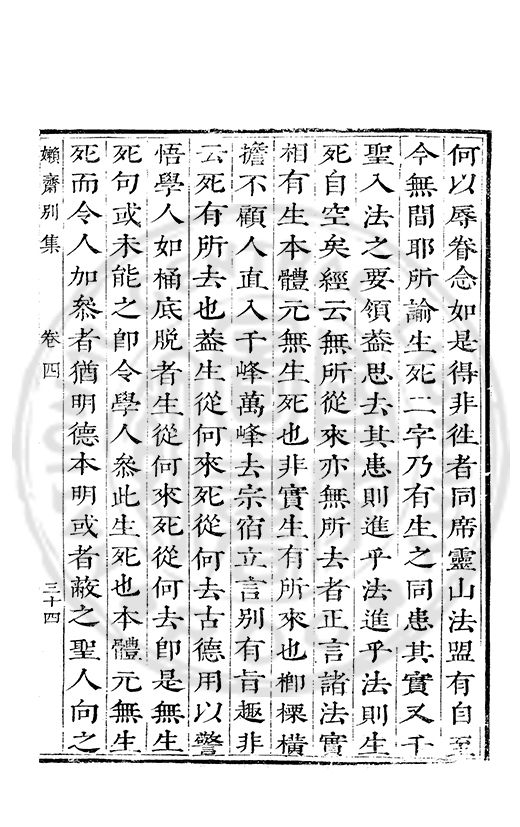 何以辱眷念如是得非徃者同席靈山法盟有自至
今無間耶所諭生死二字乃有生之同患其實又千
聖入法之要領葢思去其患則進乎法進乎法則生
死自空矣經云無所從來亦無所去者正言諸法實
相有生本體元無生死也非實生有所來也楖樑橫
擔不顧人直入千峰萬峰去宗宿立言別有旨趣非
云死有所去也葢生從何來死從何去古德用以警
悟學人如桶底脫者生從何來死從何去卽是無生
死句或未能之卽令學人叅此生死也本體元無生
死而令人加叅者猶明德本明或者蔽之聖人向之
嬾齋别集 卷四 三十四